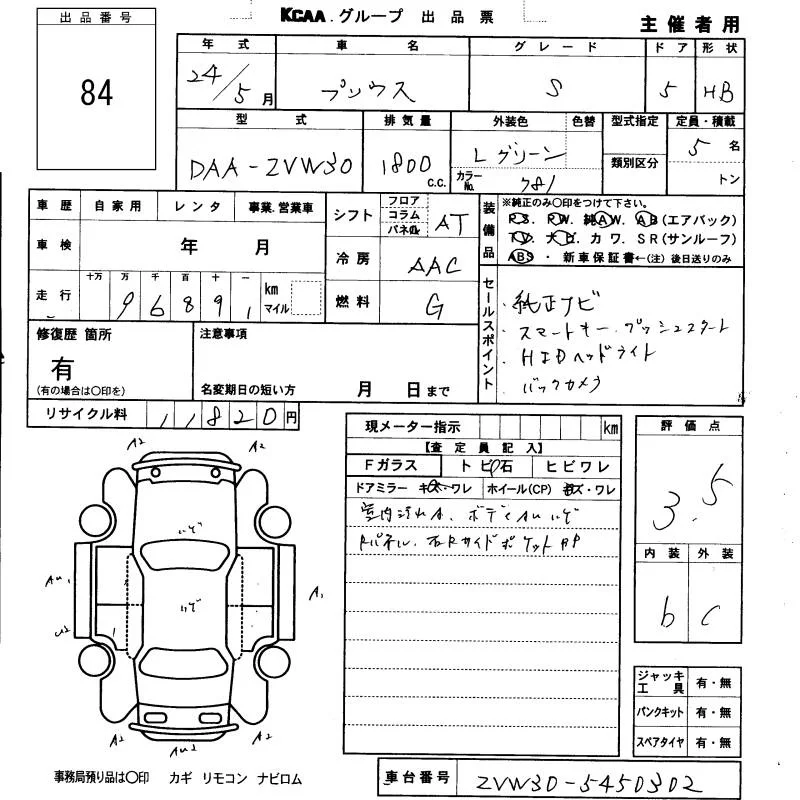 KCAA.グループ 出品票
主催者用
出品番号
84
年式 車名 グレード ドア 形状
24/5月 プリウス S 5 HB
型式 排気量 外装色 色替 型式指定 定員・積載
DAA-ZVW30 1800 C.C. Lグリーン 類別区分 5名
カラーNo. 781 トン
車歴 自家用 レンタ 事業.営業車
シフト フロア コラム パネル AT
装備品 ※純正のみ〇印をつけて下さい。
P.S. P.W. 純A.W. A.B(エアバック)
T.V. ナビ カワ. SR(サンルーフ)
ABS ・ 新車保証書←(注)後日送りのみ
車検 年 月
冷房 AAC
走行 十万 万 千 百 十 一 km マイル
9 6 8 9 1
燃料 G
セールスポイント
・純正ナビ
・スマートキー.プッシュスタート
・HIDヘッドライト
・バックカメラ
修復歴 箇所
有
(有の場合は〇印を)
注意事項
名変期日の短い方 月 日まで
リサイクル料 11820円
現メーター指示 km
【査定員記入】
Fガラス トビ石 ヒビワレ
ドアミラー キズ・ワレ ホイール(CP) キズ・ワレ
室内汚れA、ボディAU
Rパネル、右Rサイドポケット
評価点
3.5
内装 外装
b C
A2 A2
AU1 A1
U2
A2 AU2 A2
ジャッキ工具 有・無
パンクキット 有・無
スペアタイヤ 有・無
事務局預り品は〇印 カギ リモコン ナビロム
車台番号 ZVW30-5450302